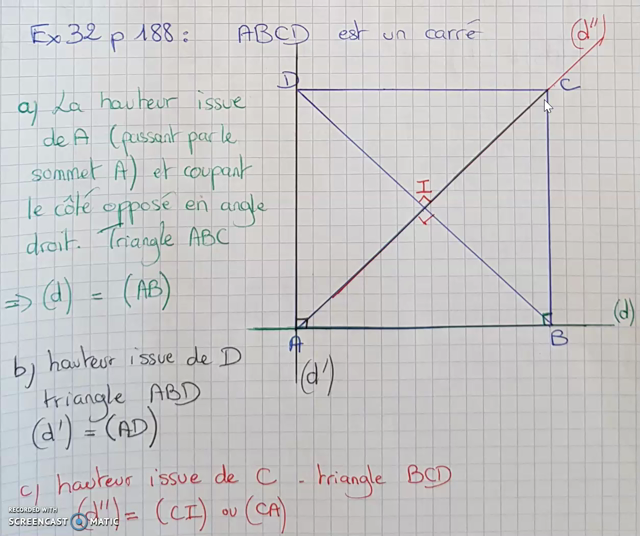 Ex 32 p 188 : ABCD est un carré
(d'')
D
C
a) La hauteur issue
de A (passant par le
sommet A) et coupant
le côté opposé en angle
droit. Triangle ABC
I
=> (d) = (AB)
(d)
A
B
b) hauteur issue de D
triangle ABD
(d')
(d') = (AD)
c) hauteur issue de C - triangle BCD
(d'') = (CI) ou (CA)
RECORDED WITH
SCREENCAST MATIC